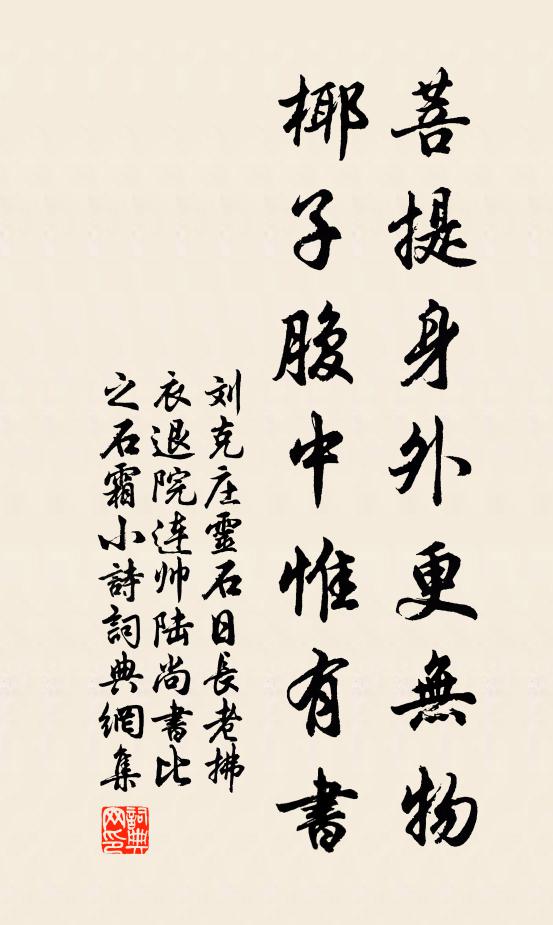 菩提身外更無物
椰子腹中惟有書
刘克庄靈石日長老拂
衣退院连帅陆尚書比
之石霜小詩詞典網集
詞典
网印